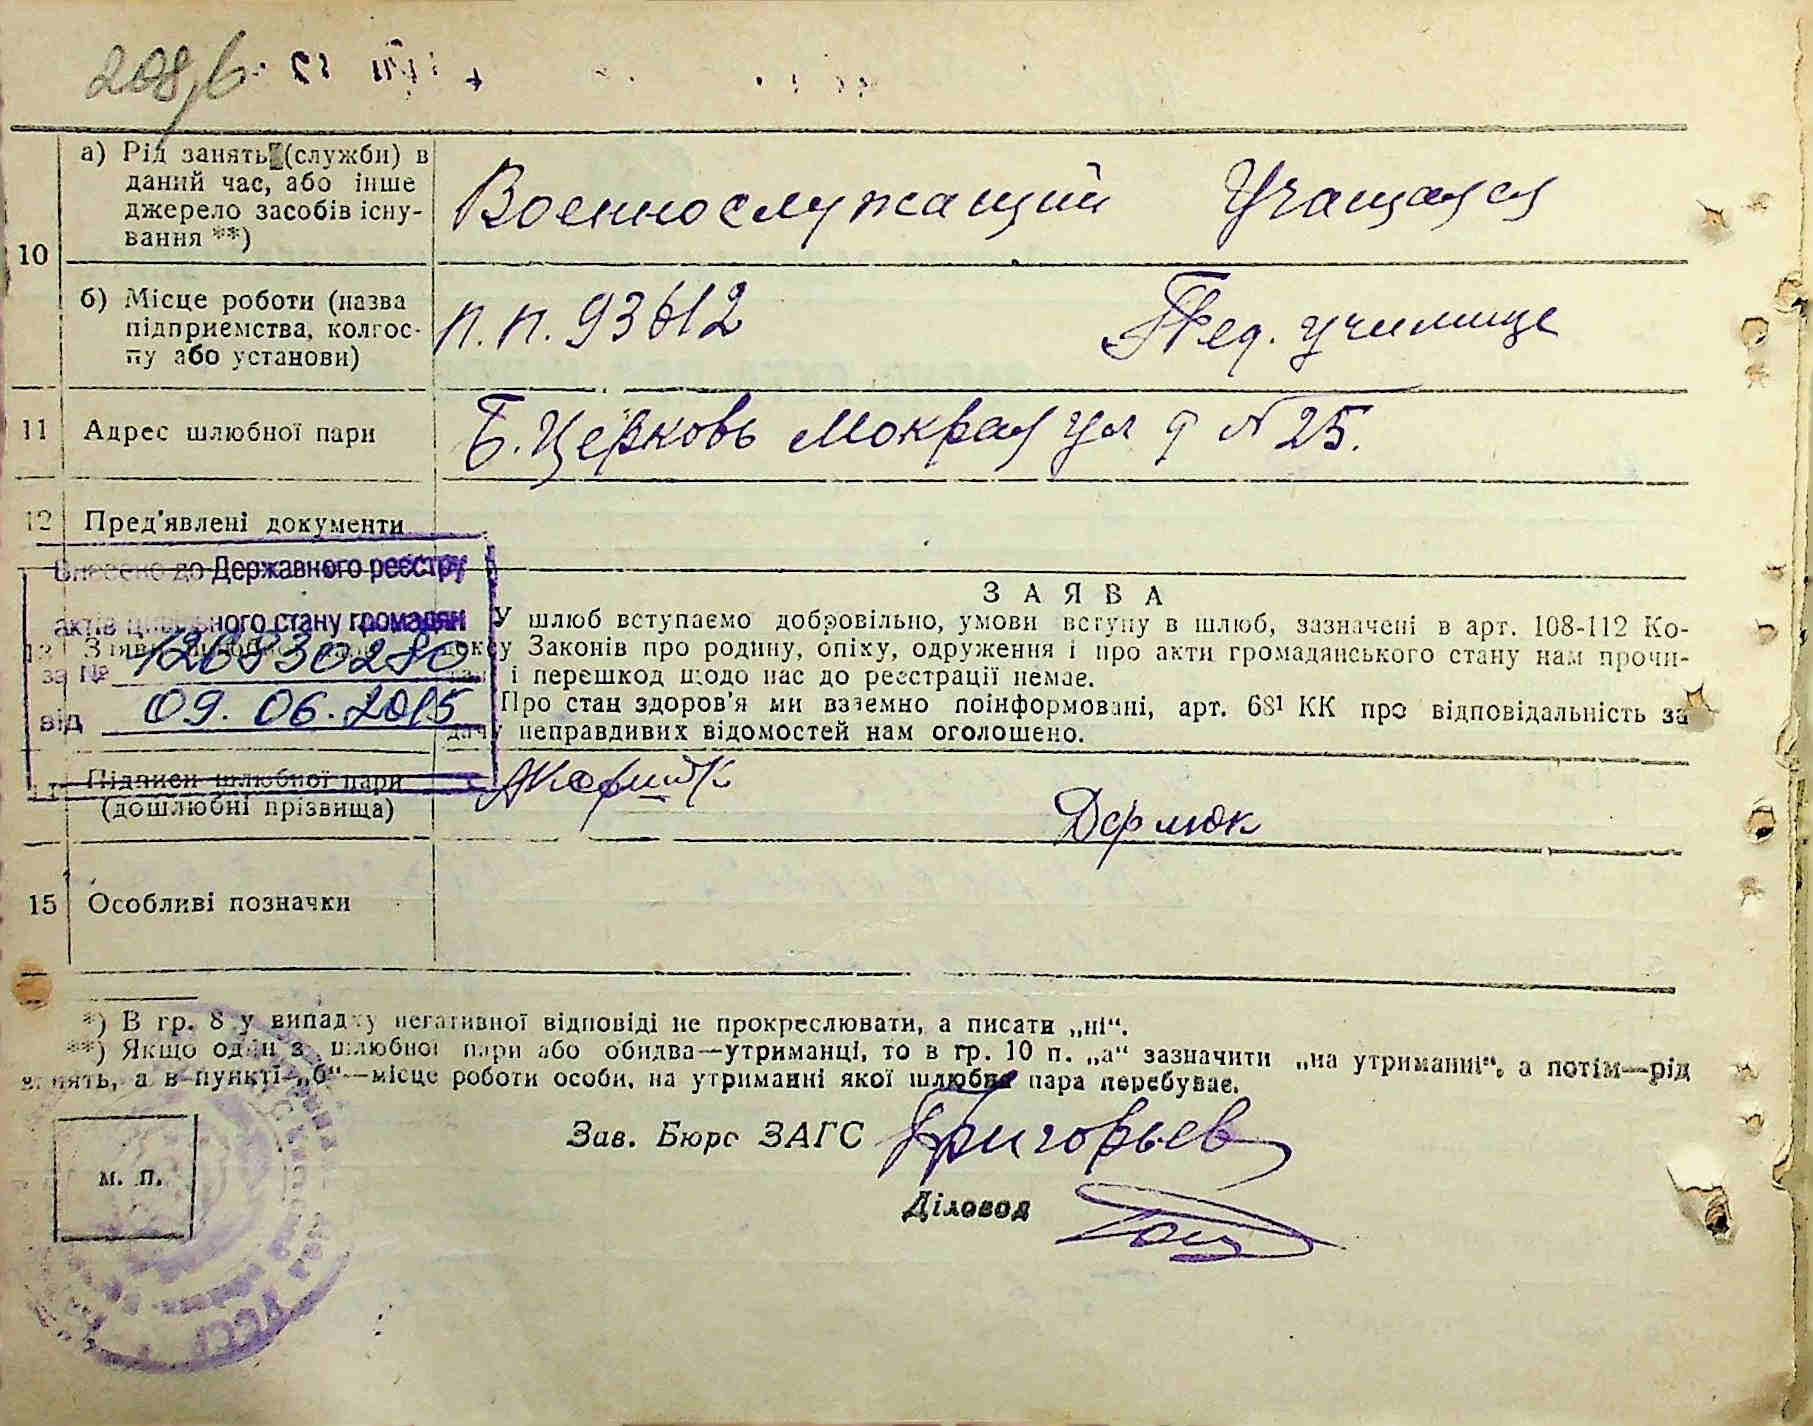 208,6
10
а) Рід занять (служби) в
даний час, або інше
джерело засобів існу-
вання **)
Военнослужащий Учащаяся
б) Місце роботи (назва
підприємства, колгос-
пу або установи)
п.п. 93612 Пед. училище
11 Адрес шлюбної пари
Б. Церковь Мокрая ул д № 25.
12 Пред'явлені документи
Внесено до Державного реєстру
актів цивільного стану громадян
за №
від 09. 06. 2015
ЗАЯВА
У шлюб вступаємо добровільно, умови вступу в шлюб, зазначені в арт. 108-112 Ко-
дексу Законів про родину, опіку, одруження і про акти громадянського стану нам прочи-
тані і перешкод щодо нас до реєстрації немає.
Про стан здоров'я ми взаємно поінформовані, арт. 68¹ КК про відповідальність за
дачу неправдивих відомостей нам оголошено.
14 Підписи шлюбної пари
(дошлюбні прізвища)
15 Особливі позначки
*) В гр. 8 у випадку негативної відповіді не прокреслювати, а писати „ні“.
**) Якщо один з шлюбної пари або обидва—утриманці, то в гр. 10 п. „а“ зазначити „на утриманні“, а потім—рід
занять, а в пункті „б“—місце роботи особи, на утриманні якої шлюбна пара перебуває.
Зав. Бюро ЗАГС Григорьев
м. п.
Діловод